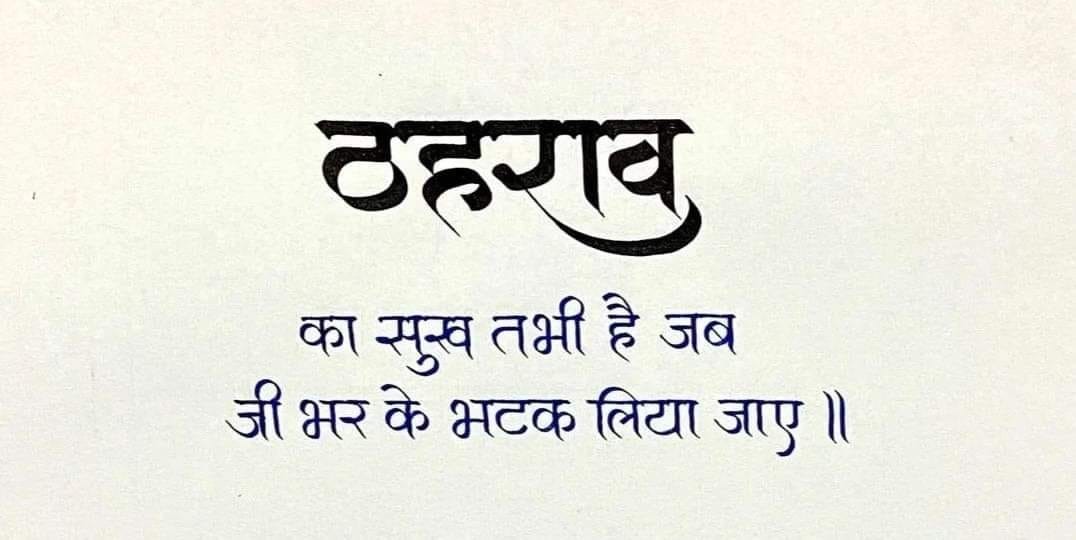 ठहराव
का सुख तभी है जब
जी भर के भटक लिया जाए ॥